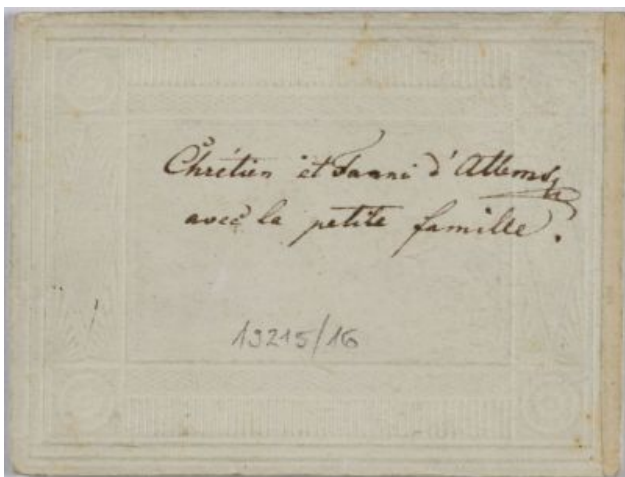 Chrétien et Fanni d'Attems
avec la petite famille.
19215/16